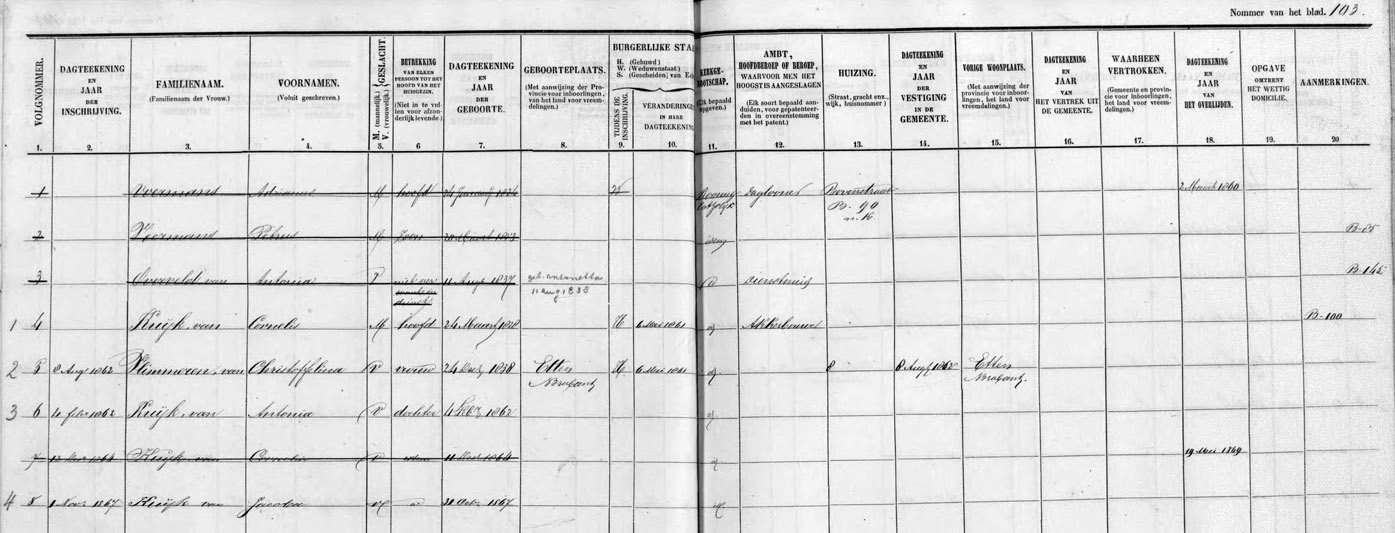 Nommer van het blad. 103.
VOLGNOMMER.
DAGTEEKENING EN JAAR DER INSCHRIJVING.
FAMILIENAAM. (Familienaam der Vrouw.)
VOORNAMEN. (Voluit geschreven.)
GESLACHT. M. (mannelijk.) V. (vrouwelijk.)
BETREKKING VAN ELKEN PERSOON TOT HET HOOFD VAN HET HUISGEZIN. (Niet in te vullen voor afzonderlijk levende.)
DAGTEEKENING EN JAAR DER GEBOORTE.
GEBOORTEPLAATS. (Met aanwijzing der Provincie voor inboorlingen, van het land voor vreemdelingen.)
BURGERLIJKE STA
H. (Gehuwd.)
W. (Weduwenstaat.)
S. (Gescheiden van Ec
TIJDENS DE INSCHRIJVING.
VERANDERING IN HARE DAGTEEKENING
KERKGENOOTSCHAP. (Elk bepaald opgeven.)
AMBT, HOOFDBEROEP OF BEROEP, WAARVOOR MEN HET HOOGST IS AANGESLAGEN (Elk soort bepaald aanduiden, voor gepatenteerden in overeenstemming met het patent.)
HUIZING. (Straat, gracht enz., wijk, huisnommer.)
DAGTEEKENING EN JAAR DER VESTIGING IN DE GEMEENTE.
VORIGE WOONPLAATS. (Met aanwijzing der provincie voor inboorlingen, het land voor vreemdelingen.)
DAGTEEKENING EN JAAR VAN HET VERTREK UIT DE GEMEENTE.
WAARHEEN VERTROKKEN. (Gemeente en provincie voor inboorlingen, het land voor vreemdelingen.)
DAGTEEKENING EN JAAR VAN HET OVERLIJDEN.
OPGAVE OMTRENT HET WETTIG DOMICILIE.
AANMERKINGEN.
1. 2. 3. 4. 5. 6 7. 8. 9. 10. 11. 12. 13. 14. 15. 16. 17. 18. 19. 20
1 Voermans Adrianus M hoofd 24 Daglooner Bovenstraat 2 Maart 1860
B-90
2 Voermans Petrus M Zoon B-85
3 Overveld van Antonia V 11 Aug 1837 geb. Antonetta Dienstmeid B-145
11 aug 1838
1 4 Kuijk van Cornelis M hoofd 24 Maart H 6 Mei 1861 Akkerbouwer B-100
2 5 8 Aug 1862 van Christoffelina V vrouw 24 1838 Etten H 6 Mei 1861 8 8 Aug 1862 Etten
Nbrabant Nbrabant.
3 6 4 febr 1862 Kuijk, van Antonia V dochter 4 1862
7 1864 Kuijk van Cornelia V 11 1864 19 Mei 1869
4 8 1 Nov. 1867 Kuijk van Jacoba 31 Octr 1867